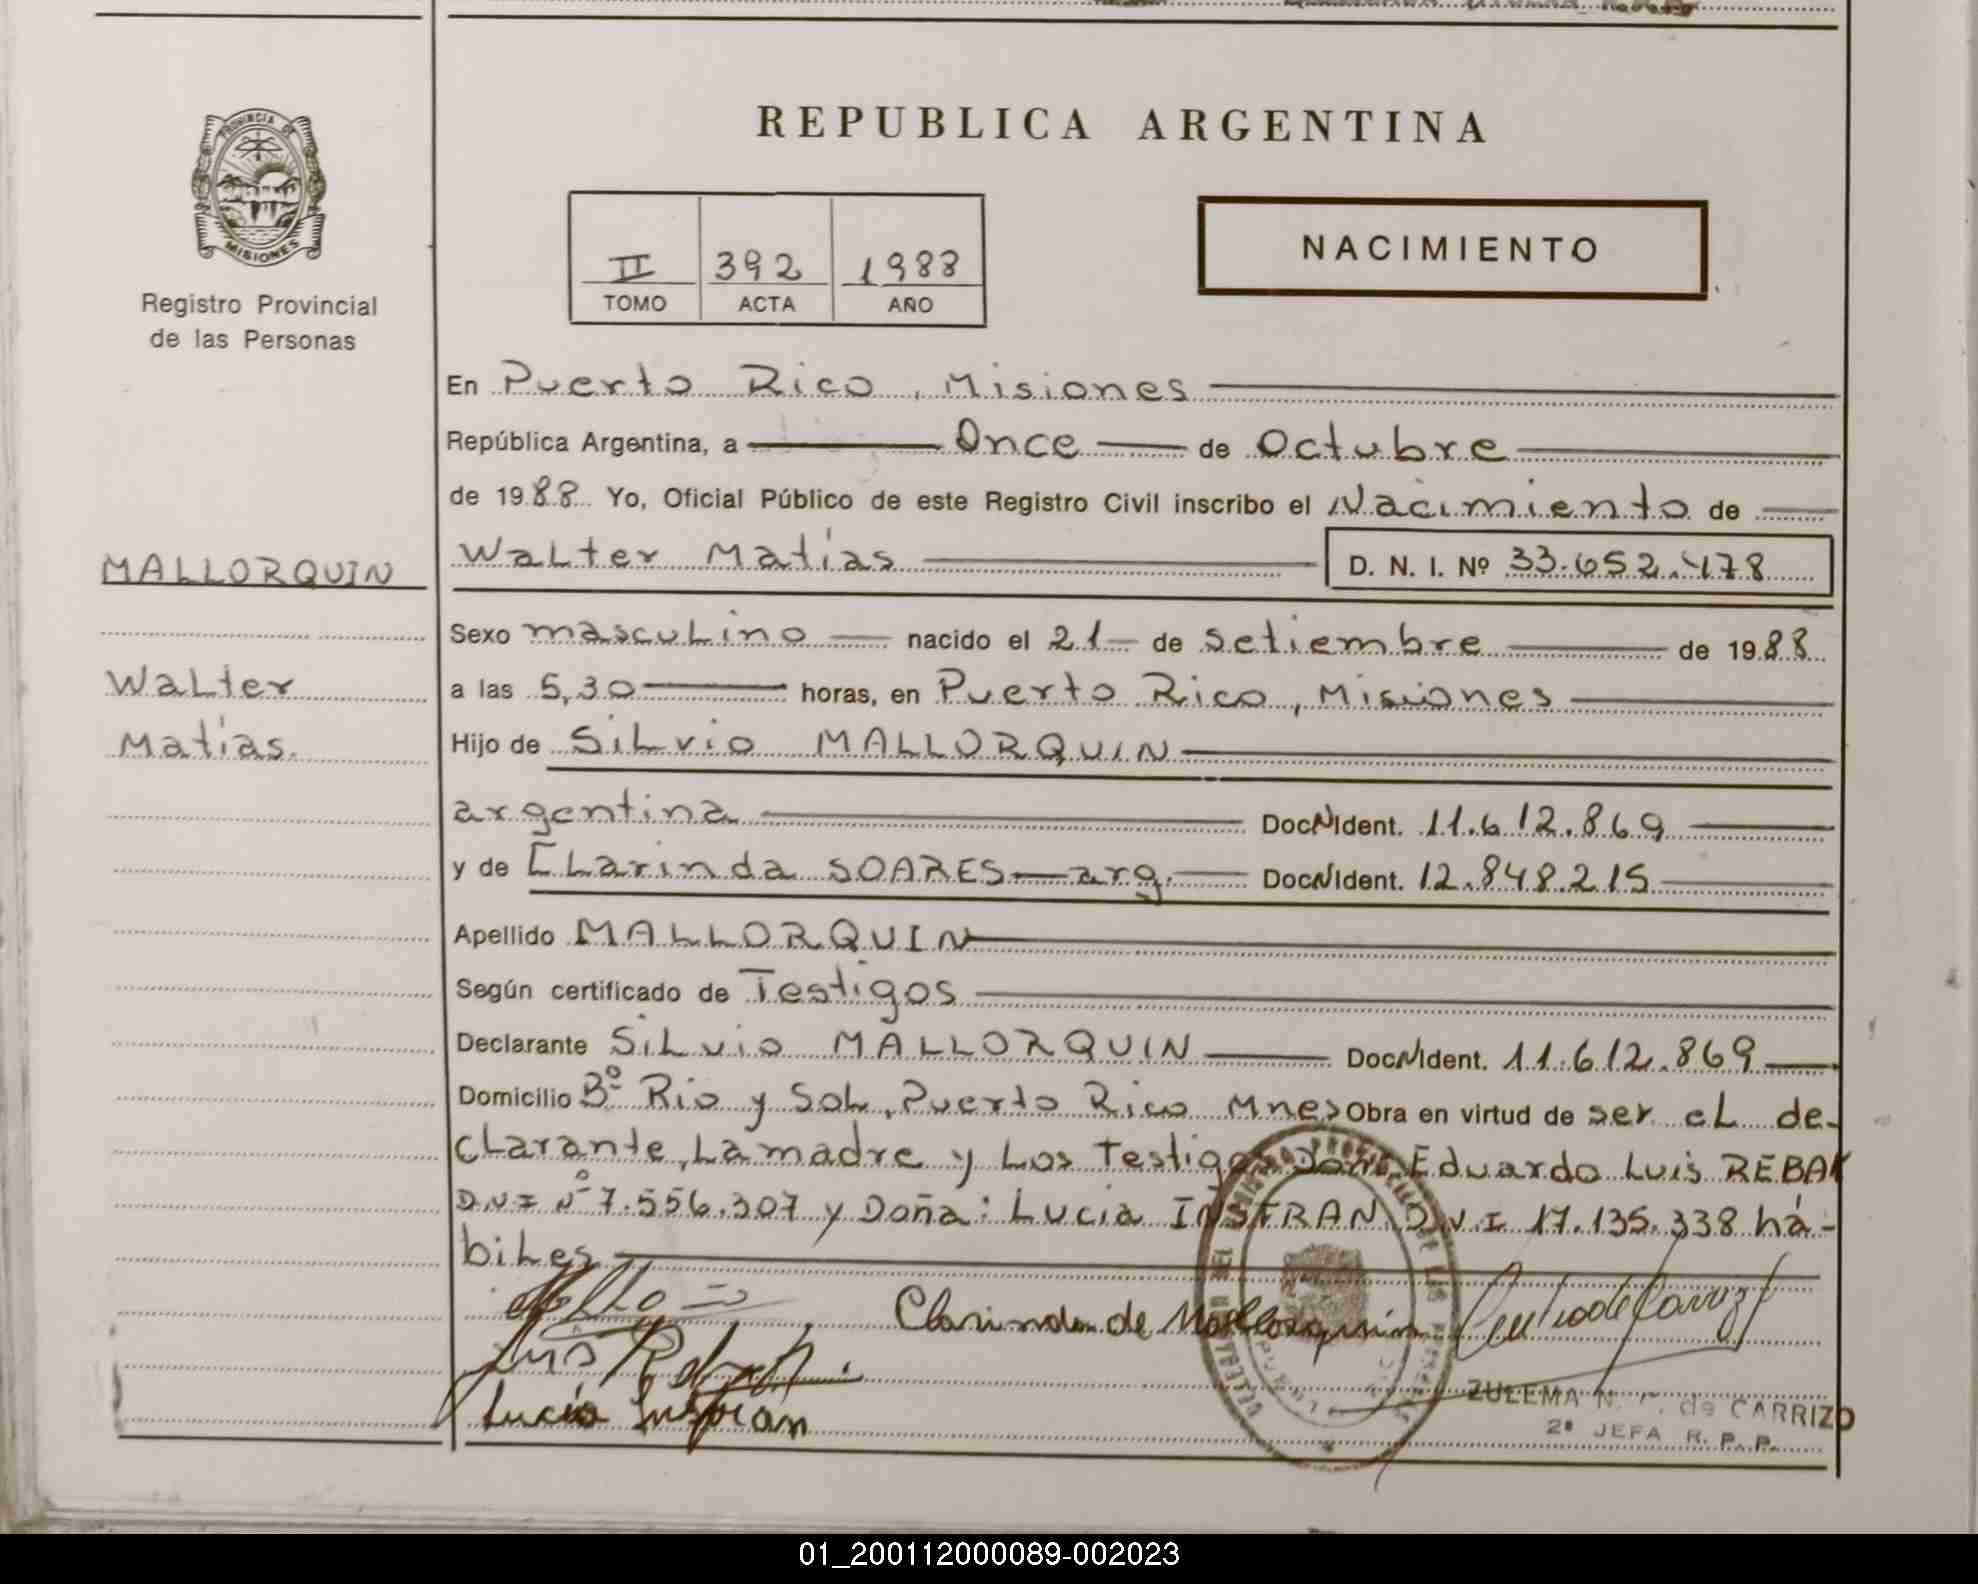 REPUBLICA ARGENTINA
PROVINCIA DE
MISIONES
Registro Provincial
de las Personas
II 392 1988
TOMO ACTA AÑO
NACIMIENTO
En Puerto Rico, Misiones
República Argentina, a Once de Octubre
de 1988 Yo, Oficial Público de este Registro Civil inscribo el Nacimiento de
MALLORQUIN
Walter Matías D. N. I. Nº 33.652.478
Sexo masculino nacido el 21 de setiembre de 1988
Walter
a las 5,30 horas, en Puerto Rico, Misiones
Matías.
Hijo de Silvio MALLORQUIN
argentina Doc Nº Ident. 11.612.869
y de CLarinda SOARES arg. Doc Nº Ident. 12.848.215
Apellido MALLORQUIN
Según certificado de Testigos
Declarante Silvio MALLORQUIN Doc Nº Ident. 11.612.869
Domicilio Bº Rio y Sol, Puerto Rico Mnes Obra en virtud de ser el de-
clarante, La madre y Los Testigos Don: Eduardo Luis REBAK
D.N.I Nº 7.556.307 y Doña: Lucia INSFRAN D.N.I 17.135.338 há-
biles
Clarinda de Mallorquin
Lucia Insfran
ZULEMA N. C. de CARRIZO
2ª JEFA R. P. P.
01_200112000089-002023